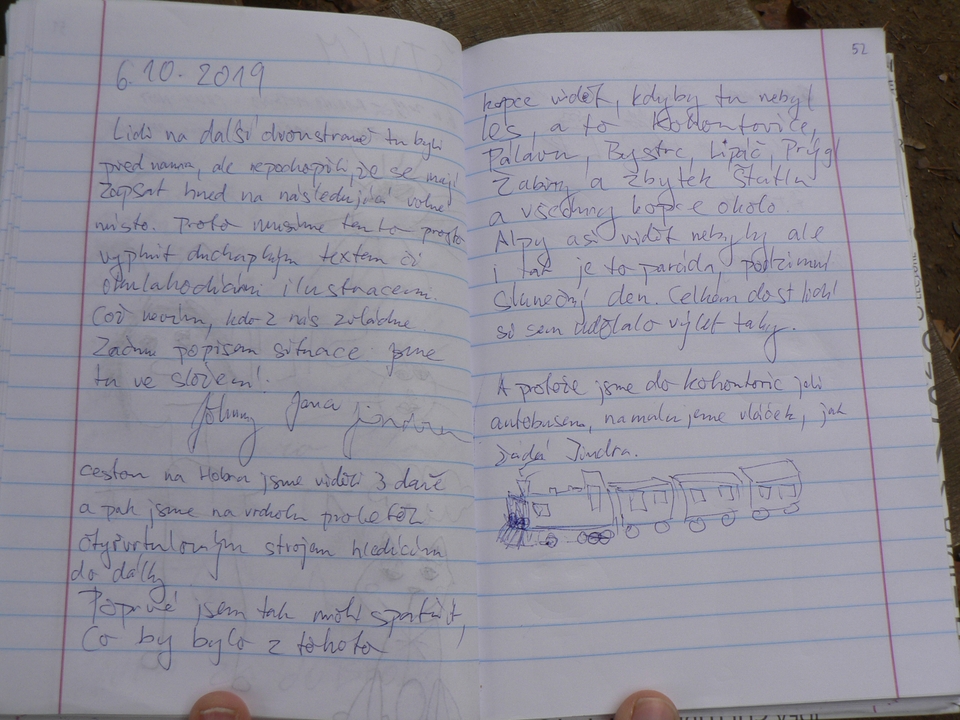 52
6.10.2019
Lidi na další dvoustraně tu byli
před nama, ale nepochopili, že se mají
zapsat hned na následující volné
místo. Proto musíme tento prostor
vyplnit duchaplným textem či
ilustracemi.
Což nevím, kdo z nás zvládne.
Začnu popisem situace. Jsme
tu ve složení:
Johny Jana Jindra
cestou na Holou jsme viděli 3
a pak jsme na vrcholu proletěli
čtyřvrtulovým strojem hledícím
do dálky
Poprvé jsem tak mohl spatřit,
co by bylo z tohoto
kopce vidět, kdyby tu nebyl
les, a to Kohoutovice,
Pálavu, Bystrc, Lipáč, Prýgl
Žabiny a zbytek Štatlu
a všechny kopce okolo.
Alpy asi vidět nebyly ale
i tak je to paráda, podzimní
slunečný den. Celkem dost lidí
si sem udělalo výlet taky.
A protože jsme do Kohoutovic jeli
autobusem, namalujeme vláček, jak
žádá Jindra.